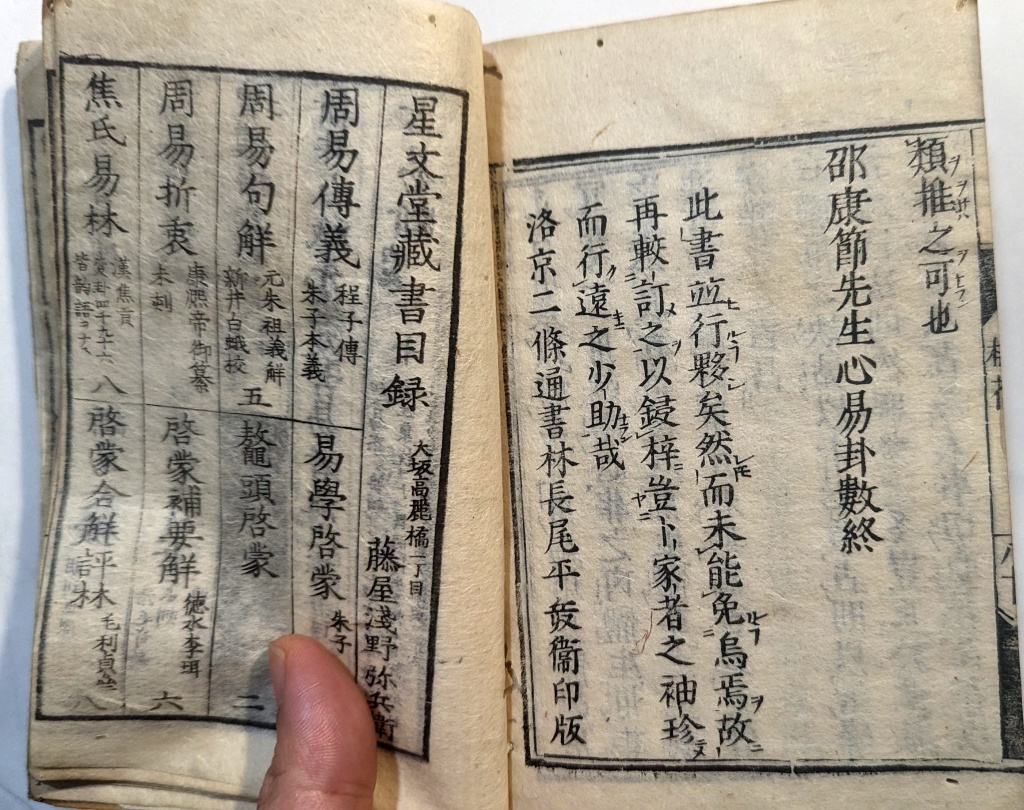 類推之可也
邵康節先生心易卦數終
此書並行夥矣然而未能免烏焉故
再較訂之以鋟梓豈卜家者之袖珍
而行遠之少助哉
洛京二條通書林長尾平兵衞印版
星文堂藏書目録
大坂高麗橋一丁目
藤屋淺野弥兵衛
周易傳義
程子傳
朱子本義
易學啓蒙
朱子
周易句解
元朱祖義解
新井白蛾校
五
鼇頭啓蒙
二
周易折衷
康熙帝御纂
未刻
啓蒙補要解
徳水李珥
六
焦氏易林
漢焦貢
八
啓蒙合解評林
毛利貞斎
八